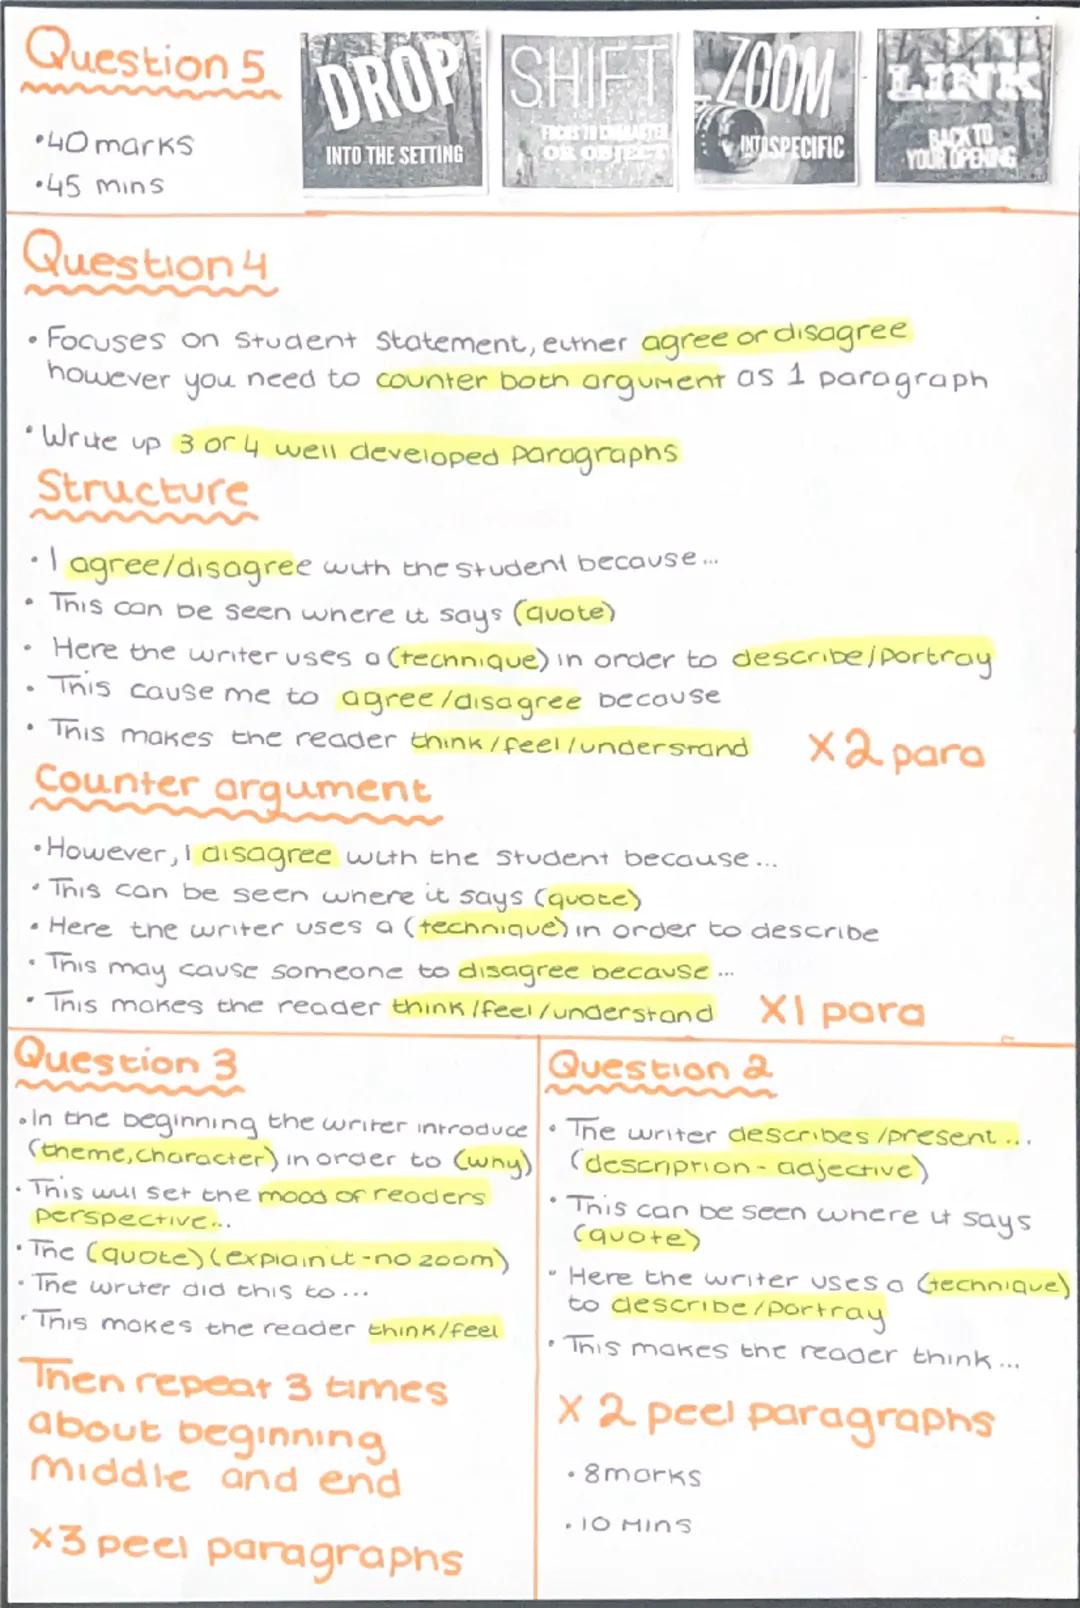 Question 5
•40 marks
•45 mins
DROP
INTO THE SETTING
SHIFT
FOCUS TO CHARACTER
OR OBJECT
ZOOM
INTO SPECIFIC
LINK
BACK TO
YOUR OPENING
Question 4
• Focuses on student statement, either agree or disagree
however you need to counter both argument as 1 paragraph
• Write up 3 or 4 well developed paragraphs
Structure
• I agree/disagree with the student because...
• This can be seen where it says (quote)
• Here the writer uses a (technique) in order to describe/portray
• This cause me to agree/disagree because
• This makes the reader think/feel/understand
X2 para
Counter argument
• However, I disagree with the student because...
• This can be seen where it says (quote)
• Here the writer uses a (technique) in order to describe
• This may cause someone to disagree because...
• This makes the reader think/feel/understand
X1 para
Question 3
• In the beginning the writer introduce
(theme, character) in order to (why)
• This will set the mood of readers
perspective...
• The (quote) (explain it - no zoom)
• The writer did this to...
• This makes the reader think/feel
Then repeat 3 times
about beginning
middle and end
X3 peel paragraphs
Question 2
• The writer describes/present...
(description - adjective)
• This can be seen where it says
(quote)
• Here the writer uses a (technique)
to describe/portray
• This makes the reader think...
X 2 peel paragraphs
• 8 marks
• 10 Mins